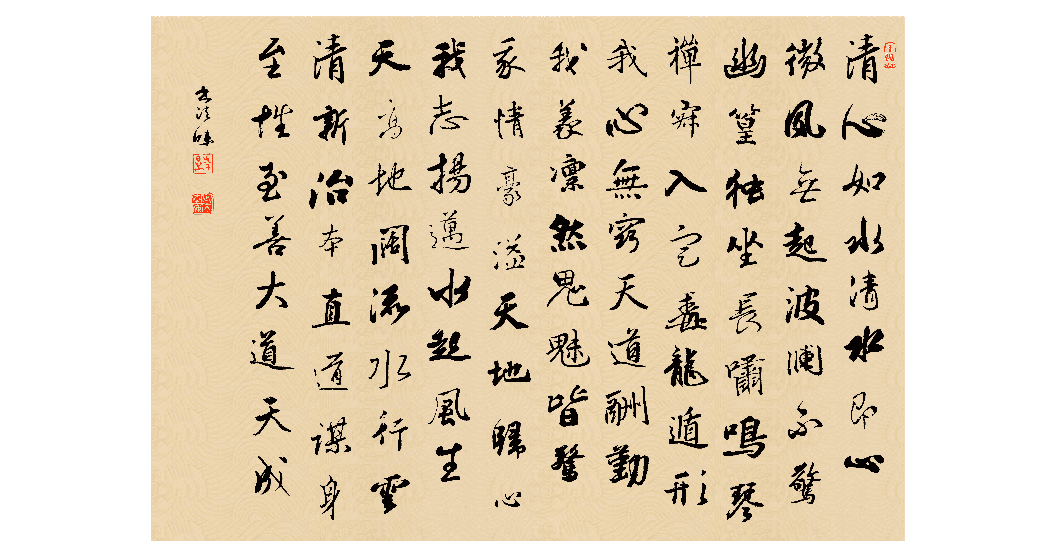 清心如水清水即心
微風無起波瀾不驚
幽篁独坐長嘯鳴琴
禪寂入定毒龍遁形
我心無窮天道酬勤
我義凜然鬼魅皆驚
我情豪溢天地歸心
我志揚邁水起風生
天高地闊流水行雲
清新治本直道謀身
至性至善大道天成